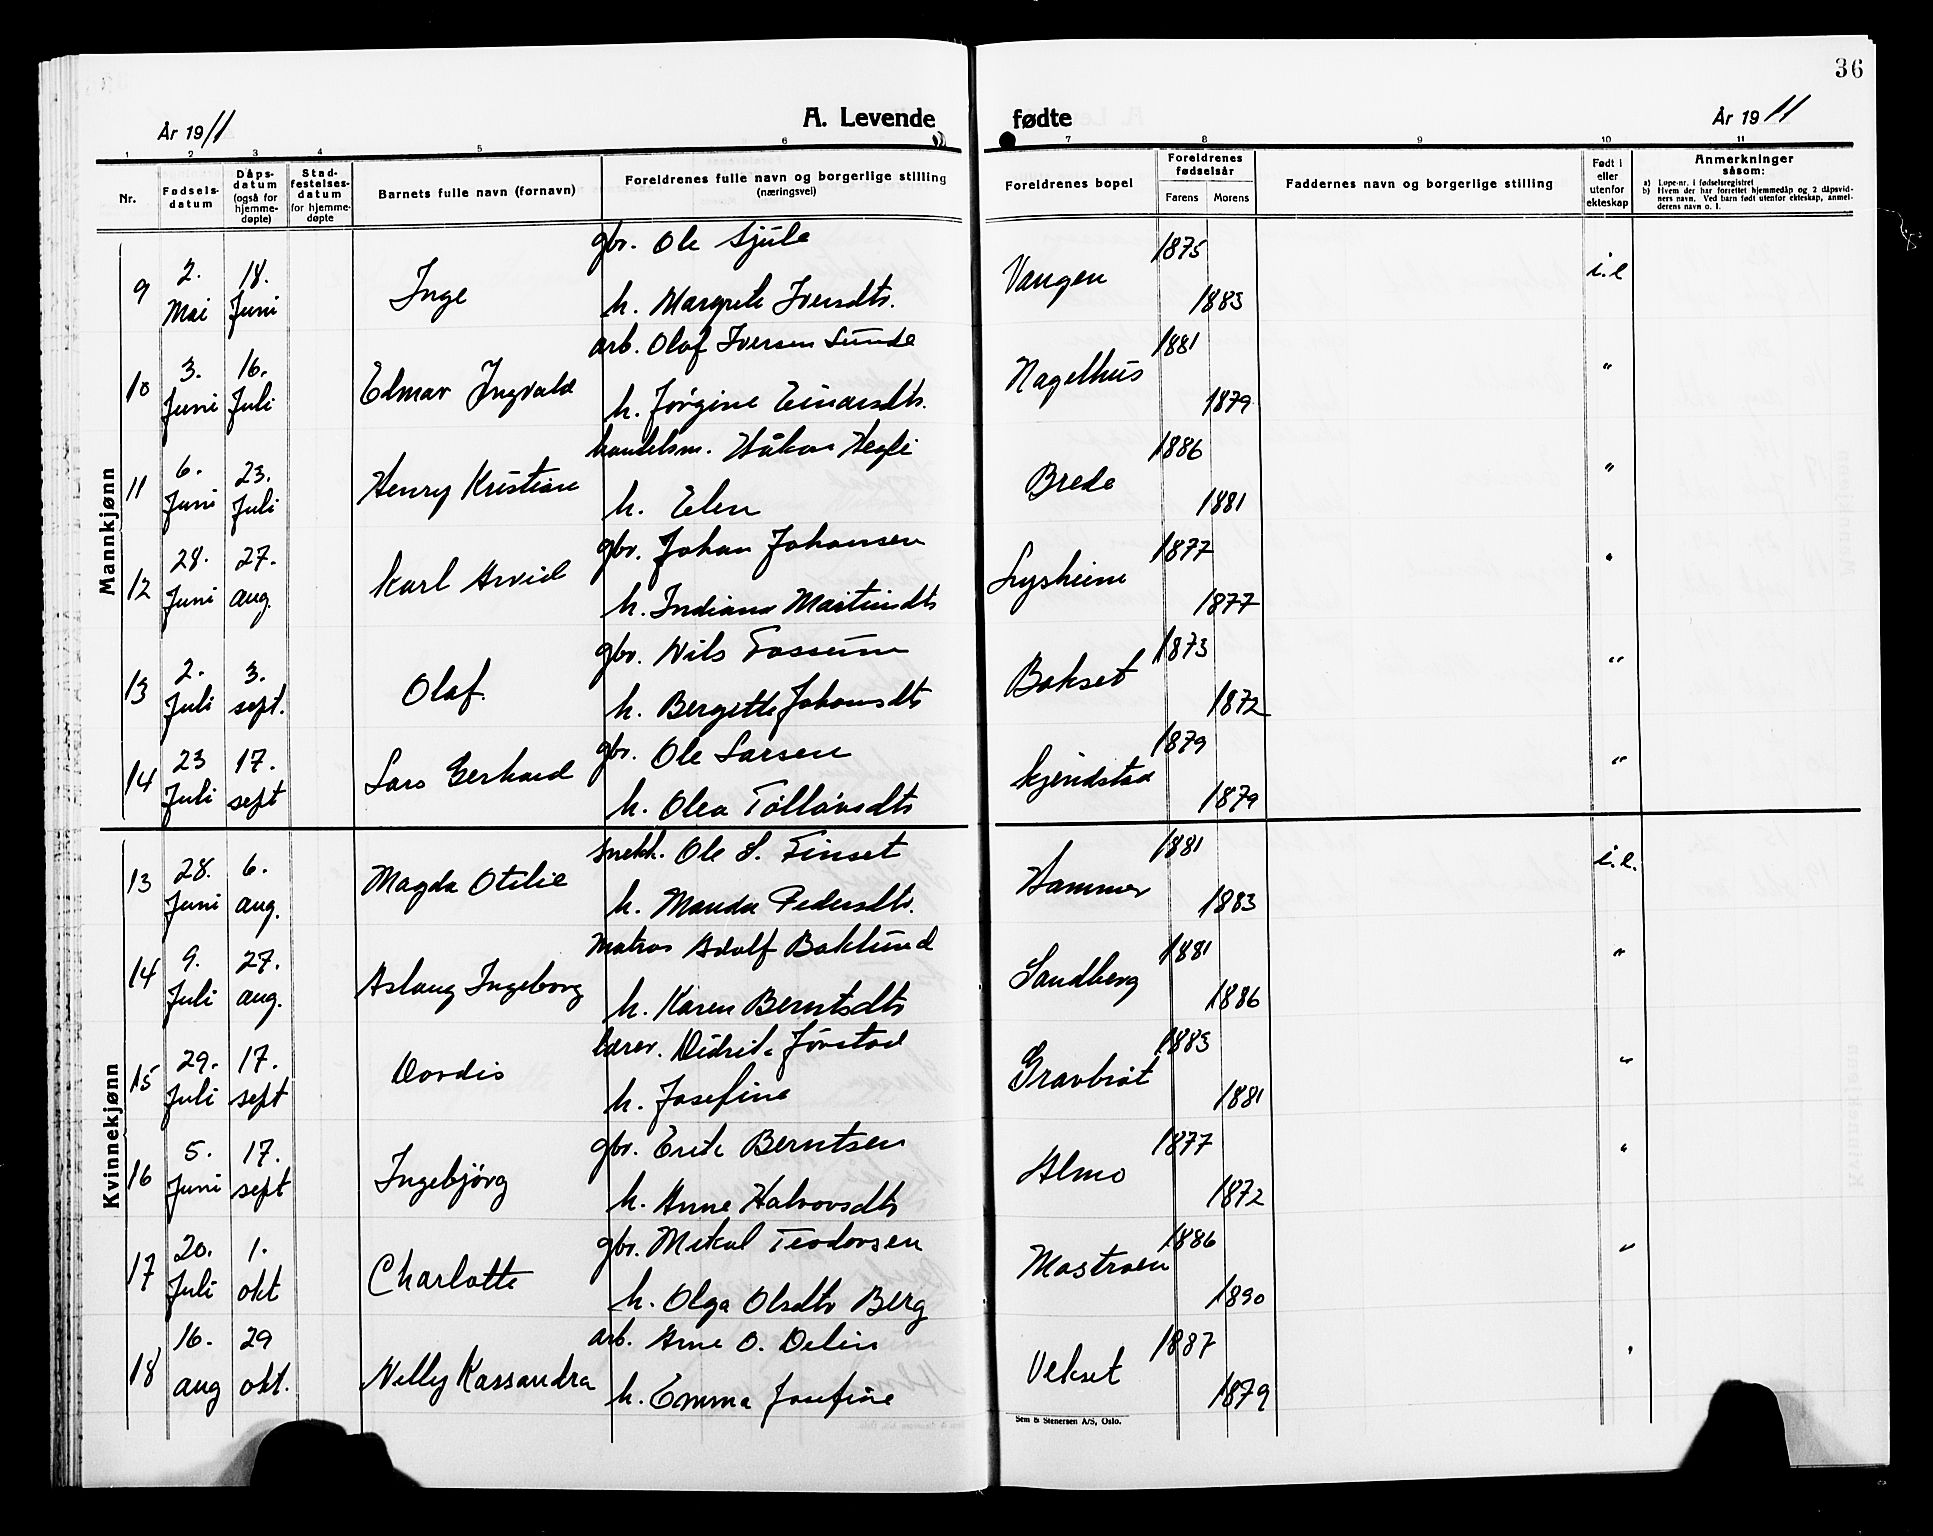 36
År 1911
A. Levende fødte
År 1911
1 2 3 4 5 6 7 8 9 10 11
Nr.
Fødsels-datum
Dåps-datum (også for hjemme-døpte)
Stad-festelses-datum for hjemme-døpte
Barnets fulle navn (fornavn)
Foreldrenes fulle navn og borgerlige stilling (næringsvei)
Foreldrenes bopel
Foreldrenes fødselsår
Farens Morens
Faddernes navn og borgerlige stilling
Født i eller utenfor ekteskap
Anmerkninger såsom:
a) Løpe-nr. i fødselsregistret
b) Hvem der har forrettet hjemmedåp og 2 dåpsvidners navn. Ved barn født utenfor ekteskap, anmelderens navn o. l.
Mannkjønn
9 2. Mai 18. Juni Inge gbr. Ole Sjule Vangen 1875 i.e
h. Margrete Iversdtr. 1883
10 3. Juni 16. Juli Elmar Ingvald arb. Olaf Iversen Sunde Nagelhus 1881 "
h. Jørgine Einarsdtr. 1879
11 6. Juni 23. Juli Henry Kristian handelsm. Håkon Hegli Brede 1886 "
h. Elen 1881
12 28. Juni 27. aug. Karl Arvid gbr. Johan Johansen Lysheim 1877 "
h. Indiana Martindtr 1877
13 2. Juli 3. sept. Olaf. gbr. Nils Fossum Bakset 1873 "
h. Bergette Johansdtr 1872
14 23 Juli 17. sept Lars Gerhard gbr. Ole Larsen Kjendstad 1879 "
h. Olea Tollåvsdtr 1879
Kvinnekjønn
13 28. Juni 6. aug. Magda Otilie snekk. Ole S. Finset Hammer 1881 i.e.
h. Manda Pedersdtr. 1883
14 9. Juli 27. aug. Aslaug Ingeborg Matros Adolf Baklund Sandberg 1881 "
h. Karen Berntsdtr 1886
15 29. Juli 17. sept Dordis lærer. Didrik Jørstad Gravbråt 1883 "
h. Josefine 1881
16 5. Juni 17. sept Ingebjörg gbr. Erik Berntsen Almo 1877 "
h. Anne Halvorsdtr 1872
17 20. Juli 1. okt Charlotte gbr. Mikal Teodorsen Mostroen 1886 "
h. Olga Olsdtr Berg 1890
18 16. aug 29 okt. Nelly Kassandra arb. Arne O. Delin Vekset 1887 "
h. Emma Josefine 1879
Sem & Stenersen A/S, Oslo.